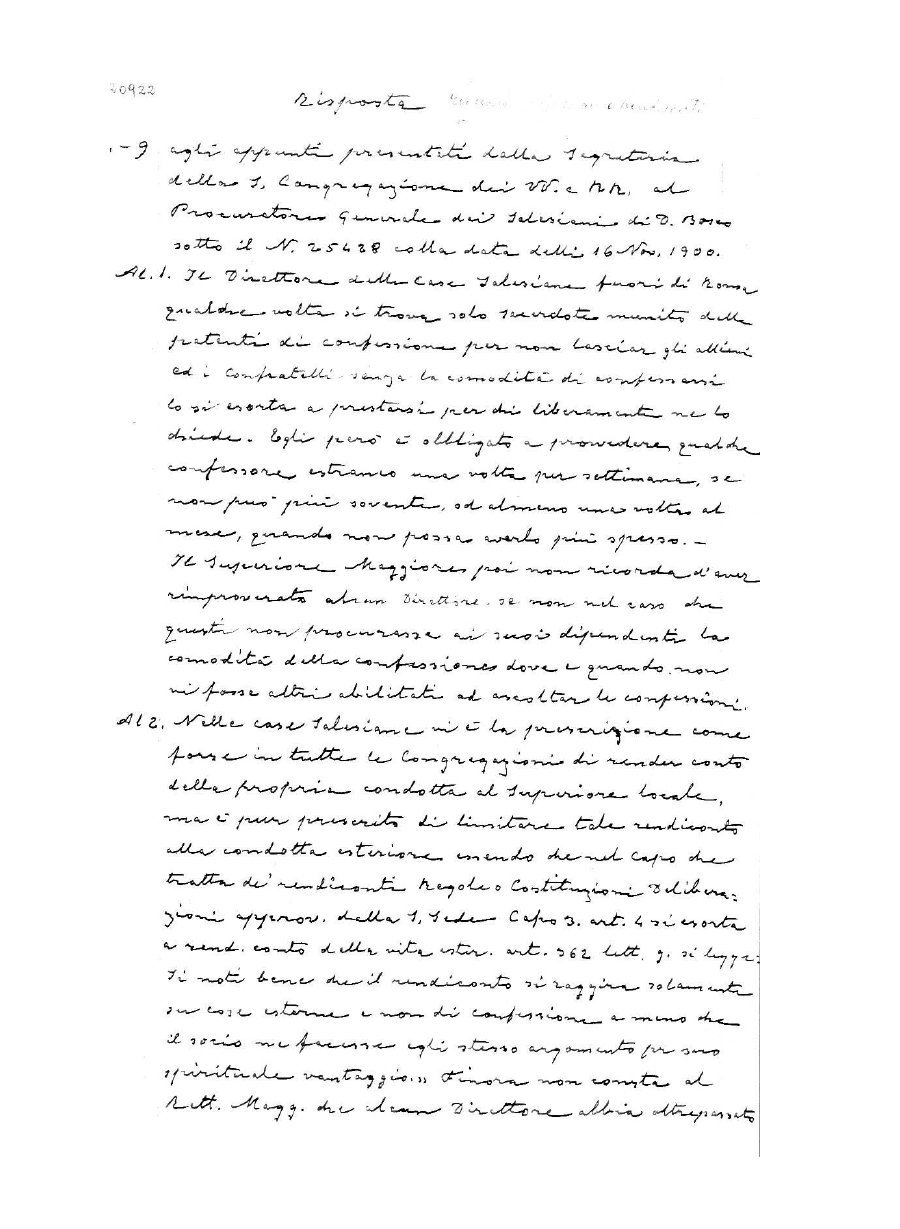 20922
Risposta
.-9 agli appunti presentati dalla Segreteria
della S. Congregazione dei VV. e RR. al
Procuratore Generale dei Salesiani di D. Bosco
sotto il N. 25428 colla data delli 16 Nov. 1900.
Al. 1. Il Direttore delle Case Salesiane fuori di Roma
qualche volta si trova solo sacerdote munito delle
patenti di confessione per non lasciar gli allievi
ed i Confratelli senza la comodità di confessarsi
lo si esorta a prestarsi per chi liberamente ne lo
chiede. Egli però è obbligato a provvedere qualche
confessore estraneo una volta per settimana, se
non può più sovente, od almeno una volta al
mese, quando non possa averlo più spesso. -
Il Superiore Maggiore poi non ricorda d'aver
rimproverato alcun Direttore se non nel caso che
questi non procurasse ai suoi dipendenti la
comodità della confessione dove e quando non
vi fosse altri abilitati ad ascoltar le confessioni.
Al 2. Nelle case Salesiane vi è la prescrizione come
forse in tutte le Congregazioni di render conto
della propria condotta al Superiore locale,
ma è pur prescritto di limitare tale rendiconto
alla condotta esteriore essendo che nel Capo che
tratta de' rendiconti Regole o Costituzioni Delibera=
zioni approv. dalla S. Sede Capo 3. art. 4 si esorta
a rend. conto della vita ester. art. 362 lett. g. si legge:
Si noti bene che il rendiconto si raggira solamente
su cose esterne e non di confessione a meno che
il socio ne facesse egli stesso argomento pr suo
spirituale vantaggio.» Finora non consta al
Rett. Magg. che alcun Direttore abbia oltrepassato